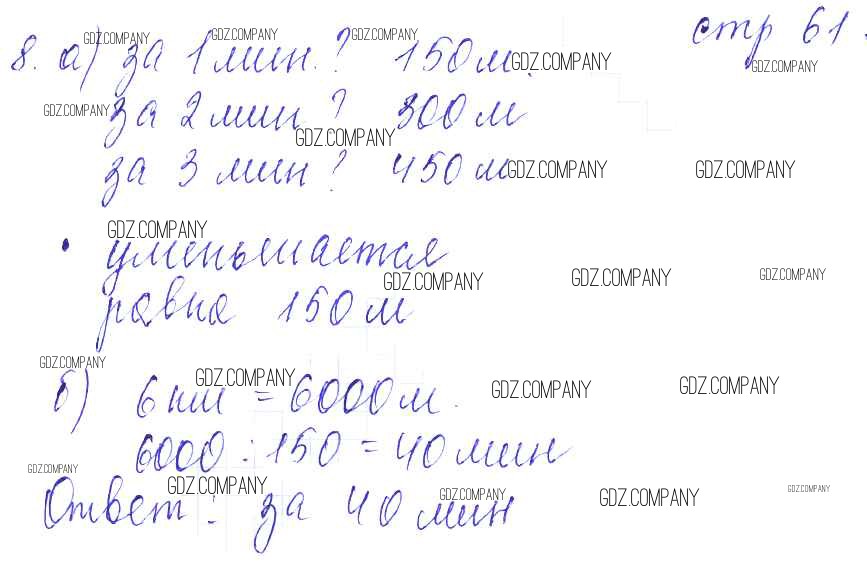 стр 61.
8. а) за 1 мин. ? 150 м.
за 2 мин ? 300 м
за 3 мин ? 450 м
• уменьшается
равна 150 м
б) 6 км = 6000 м.
6000 : 150 = 40 мин
Ответ: за 40 мин
GDZ.COMPANY GDZ.COMPANY GDZ.COMPANY
GDZ.COMPANY GDZ.COMPANY
GDZ.COMPANY
GDZ.COMPANY
GDZ.COMPANY GDZ.COMPANY
GDZ.COMPANY
GDZ.COMPANY GDZ.COMPANY GDZ.COMPANY
GDZ.COMPANY
GDZ.COMPANY GDZ.COMPANY GDZ.COMPANY
GDZ.COMPANY
GDZ.COMPANY GDZ.COMPANY GDZ.COMPANY GDZ.COMPANY